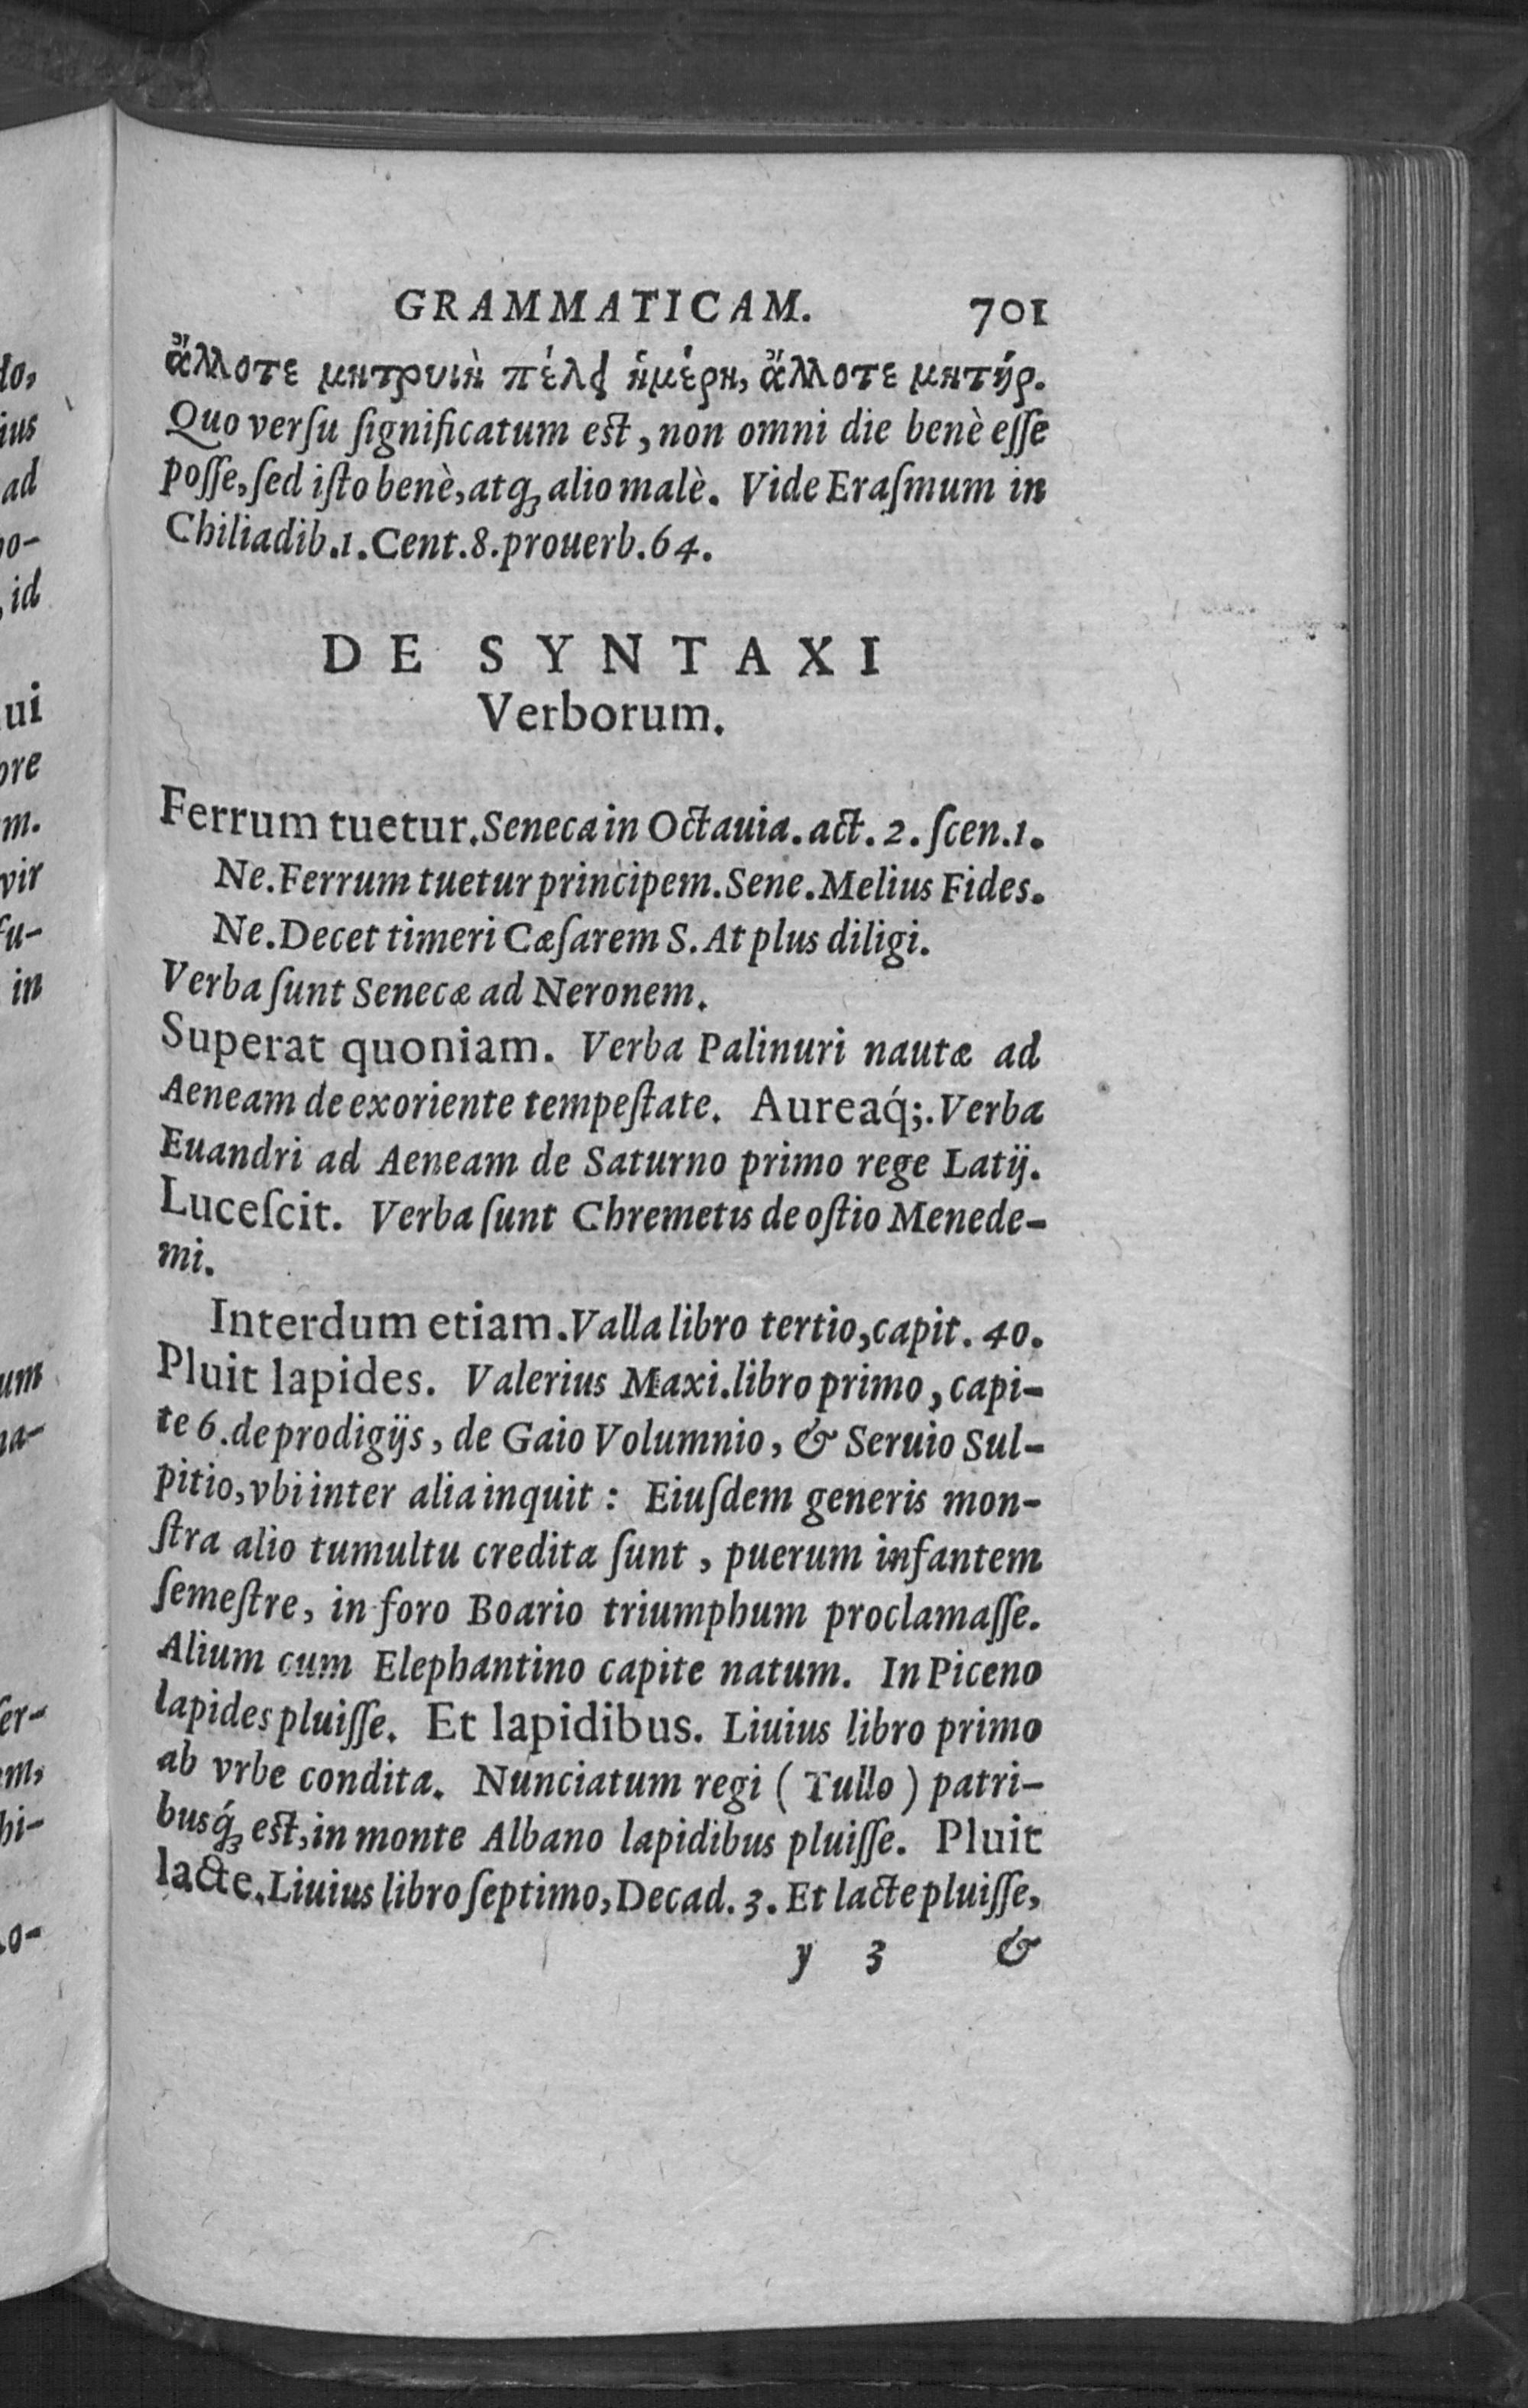 GRAMMATICAM. 701
ἄλλοτε μητρυιὴ πέλει ἡμέρη, ἄλλοτε μητήρ.
Quo verſu ſignificatum est, non omni die benè eſſe
poſſe, ſed iſto benè, atq; alio malè. Vide Eraſmum in
Chiliadib. 1. Cent. 8. prouerb. 64.
DE SYNTAXI
Verborum.
Ferrum tuetur. Seneca in Octauia. act. 2. ſcen. 1.
Ne. Ferrum tuetur principem. Sene. Melius Fides.
Ne. Decet timeri Cæſarem S. At plus diligi.
Verba ſunt Senecæ ad Neronem.
Superat quoniam. Verba Palinuri nautæ ad
Aeneam de exoriente tempeſtate. Aureaq́;. Verba
Euandri ad Aeneam de Saturno primo rege Latij.
Luceſcit. Verba ſunt Chremetis de oſtio Menede-
mi.
Interdum etiam. Valla libro tertio, capit. 40.
Pluit lapides. Valerius Maxi. libro primo, capi-
te 6. de prodigijs, de Gaio Volumnio, & Seruio Sul-
pitio, vbi inter alia inquit: Eiuſdem generis mon-
ſtra alio tumultu credita ſunt, puerum infantem
ſemeſtre, in foro Boario triumphum proclamaſſe.
Alium cum Elephantino capite natum. In Piceno
lapides pluiſſe. Et lapidibus. Liuius libro primo
ab vrbe condita. Nunciatum regi (Tullo) patri-
busq́; est, in monte Albano lapidibus pluiſſe. Pluit
lacte. Liuius libro ſeptimo, Decad. 3. Et lacte pluiſſe,
y 3 &